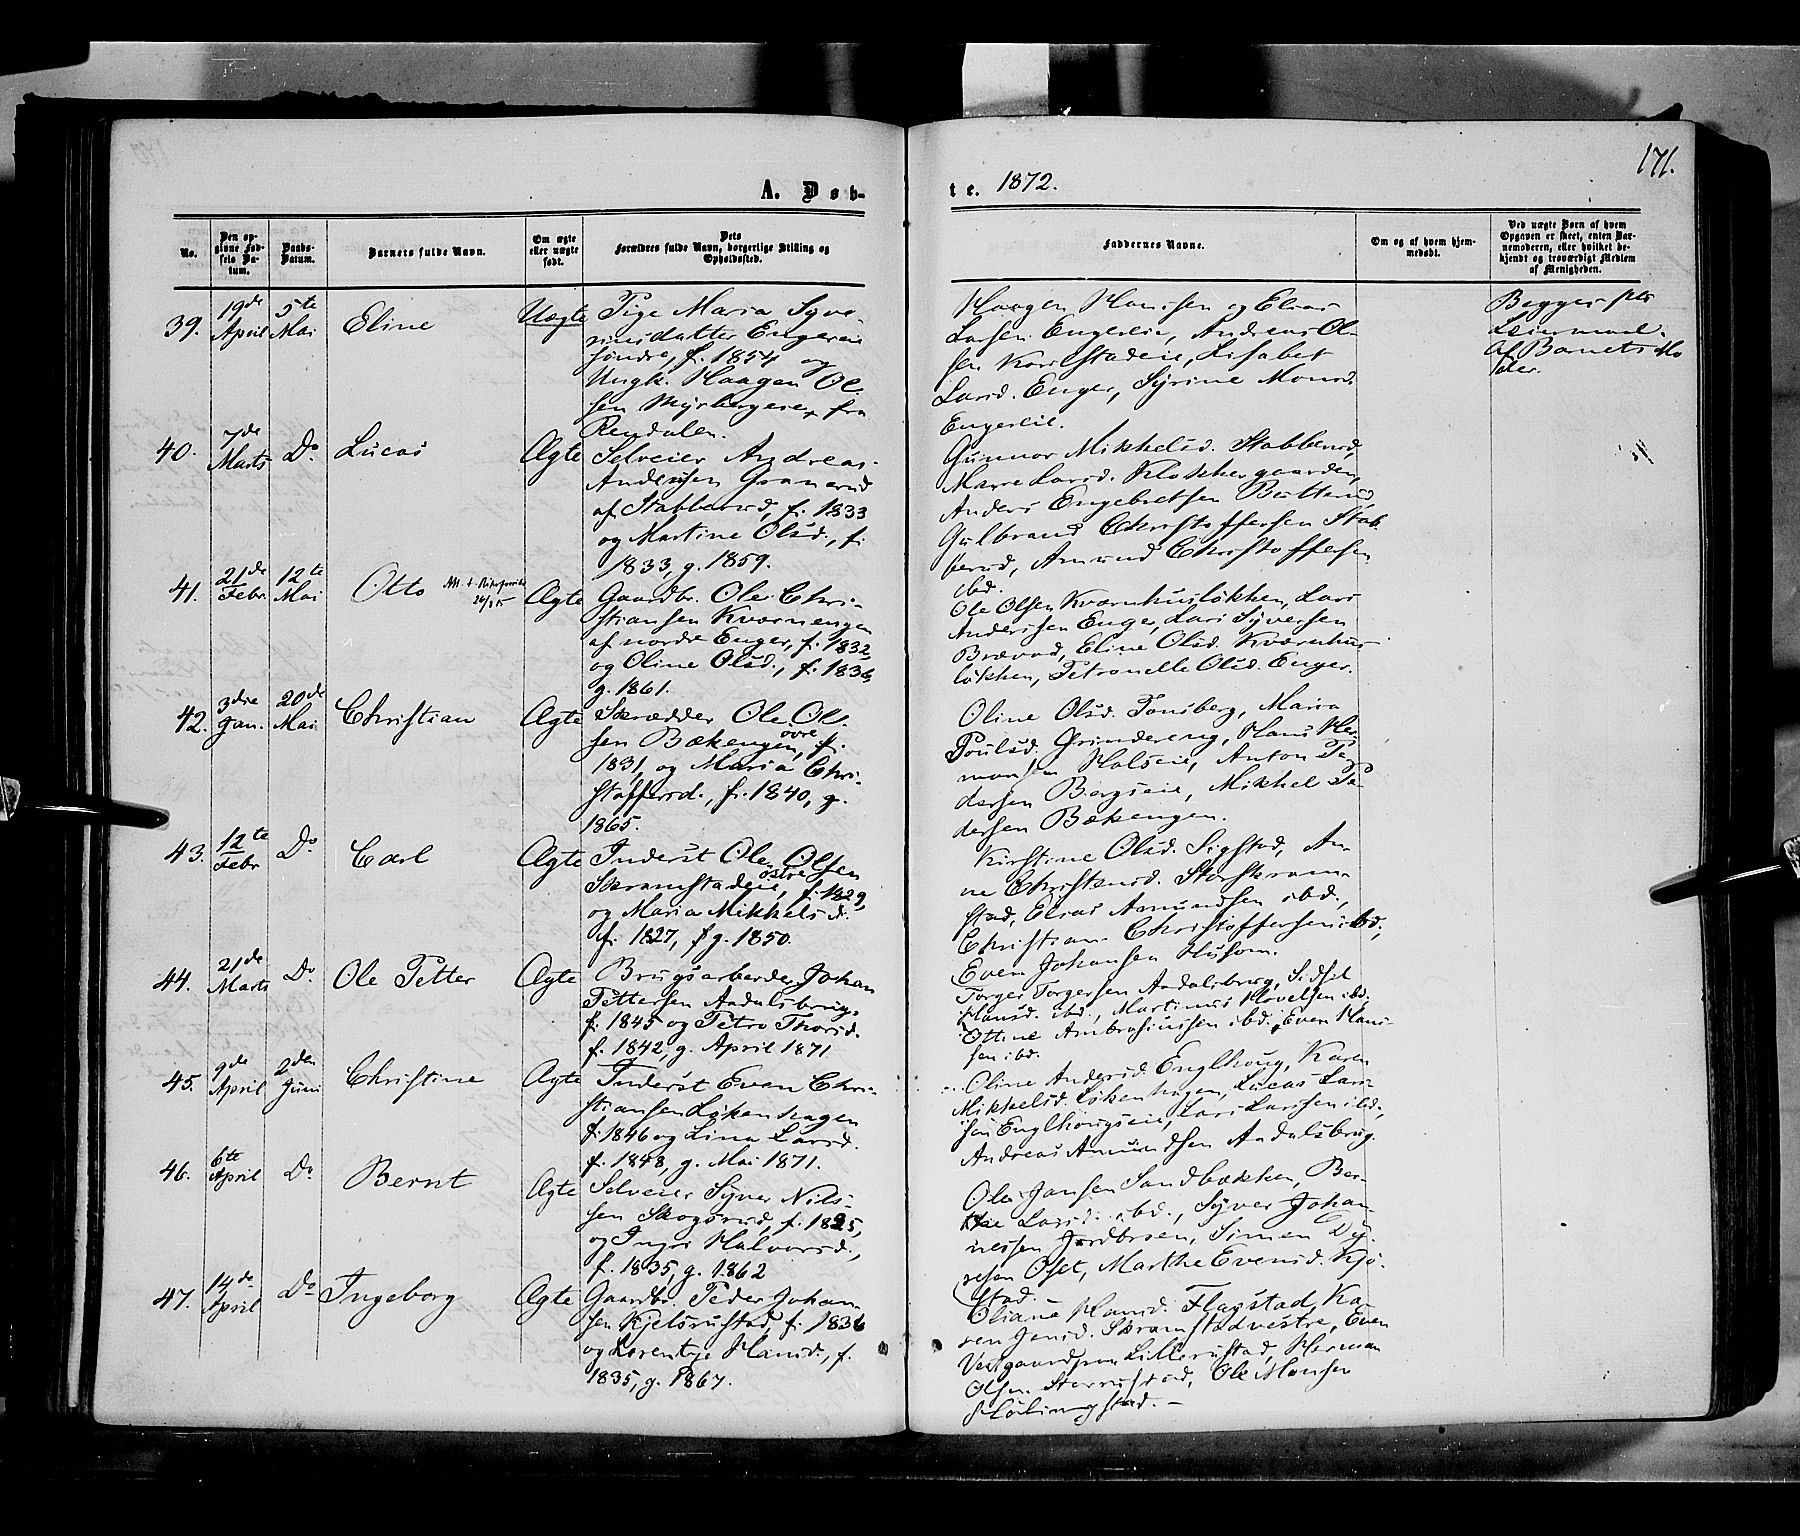 171.
A. Døb-
te. 1872.
No.
Den op-
givne Fød-
sels Da-
tum.
Daabs-
Datum.
Barnets fulde Navn.
Om ægte
eller uægte
født.
Dets
Forældres fulde Navn, borgerlige Stilling og
Opholdssted.
Faddernes Navne.
Om og af hvem hjem-
medøbt.
Ved uægte Børn af hvem
Opgaven er skeet, enten Bar-
nemoderen, eller hvilket be-
kjendt og troværdigt Medlem
af Menigheden.
39.
19de
April
5te
Mai
Eline
Uægte
Pige Maria Syve-
rinusdatter Engereie
søndre, f. 1854 og
Ungk. Haagen Ol-
sen Myrbergeie, fra
Rendalen.
Haagen Hansen og Elias
Larsen Engereie, Andreas Ol-
sen Karlstadeie, Lisabet
Larsd. Enger, Syrine Monsd.
Engereie.
Begges 1ste
Leiermaal.
Af Barnets Mo
der.
40.
7de
Marts
Do
Lucas
Ægte
Selveier Andreas
Andersen Granerud
af Stabberud, f. 1833
og Martine Olsd., f.
1833, g. 1859.
Gunnor Mikkelsd. Stabberud,
Maren Larsd. Klokkergaarden,
Anders Engebretsen Butterud,
Gulbrand Christoffersen Stab-
berud, Amund Christoffersen
ibd.
41.
21de
Febr.
12te
Mai
Otto
26/3 15
Ægte
Gaardbr. Ole Chri-
stiansen Kværnengen
af nordre Enger, f. 1832,
og Oline Olsd., f. 1836,
g. 1861.
Ole Olsen Kværnhusløkken, Lars
Andersen Enger, Lars Syversen
Brævad, Eline Olsd. Kværnhus-
løkken, Petronelle Olsd. Enger.
42.
3die
Jan.
20de
Mai
Christian
Ægte
Skrædder Ole Ol-
sen Bækengen, øvre f.
1831, og Maria Chri-
stoffersd., f. 1840, g.
1865.
Oline Olsd. Tonsberg, Maria
Poulsd. Grindereng, Hans Her-
mansen Holseie, Anton Pe-
dersen Bergseie, Mikkel Pe-
dersen Bækengen.
43.
12te
Febr
Do
Carl
Ægte
Inderst Ole Olsen
Skramstadeie, østre f. 1829,
og Maria Mikkelsd.
f. 1827, g. 1850.
Kirstine Olsd. Sigstad, An-
ne Christensd. Storskram-
stad, Elias Amundsen ibd.,
Christian Christoffersen ibd.,
Even Johansen Husom.
44.
21de
Marts
Do
Ole Petter
Ægte
Brugsarbeider Johan
Pettersen Aadalsbrug,
f. 1845 og Petra Thorsd.
f. 1842, g. April 1871
Torger Torgersen Aadalsbrug, Sidsel
Hansd. ibd., Martinus Hovelsen ibd.
Ottine Ambrosiussen ibd. Even Han-
sen ibd.
45.
9de
April
2den
Juni
Christine
Ægte
Inderst Even Chri-
stiansen Løkenhagen
f. 1846 og Lina Larsd.
f. 1848, g. Mai 1871.
Oline Andersd. Englhoug, Karen
Mikkelsd. Løkenhagen, Lucas Lar-
sen Englhougseie, Lars Larsen ibd.,
Andreas Amundsen Aadalsbrug.
46.
6te
April
Do
Bernt
Ægte
Selveier Syver Nils-
sen Skogsrud, f. 1825,
og Inger Halvorsd.,
f. 1835, g. 1862
Ole Jansen Sandbækken, Ber-
the Larsd. ibd., Syver Johan-
nessen Jordbroen, Simen Dy-
resen Oset, Marthe Evensd. Kjø-
stad.
47.
14de
April
Do
Ingeborg
Ægte
Gaardbr. Peder Johan-
sen Kjelsrustad, f. 1836
og Lorentze Hansd., f.
1835, g. 1867.
Oliane Hansd. Flagstad, Ka-
ren Jensd. Skramstadvestre, Even
Vestgaardsen Lillerustad, Herman
Olsen Storrustad, Ole Monsen